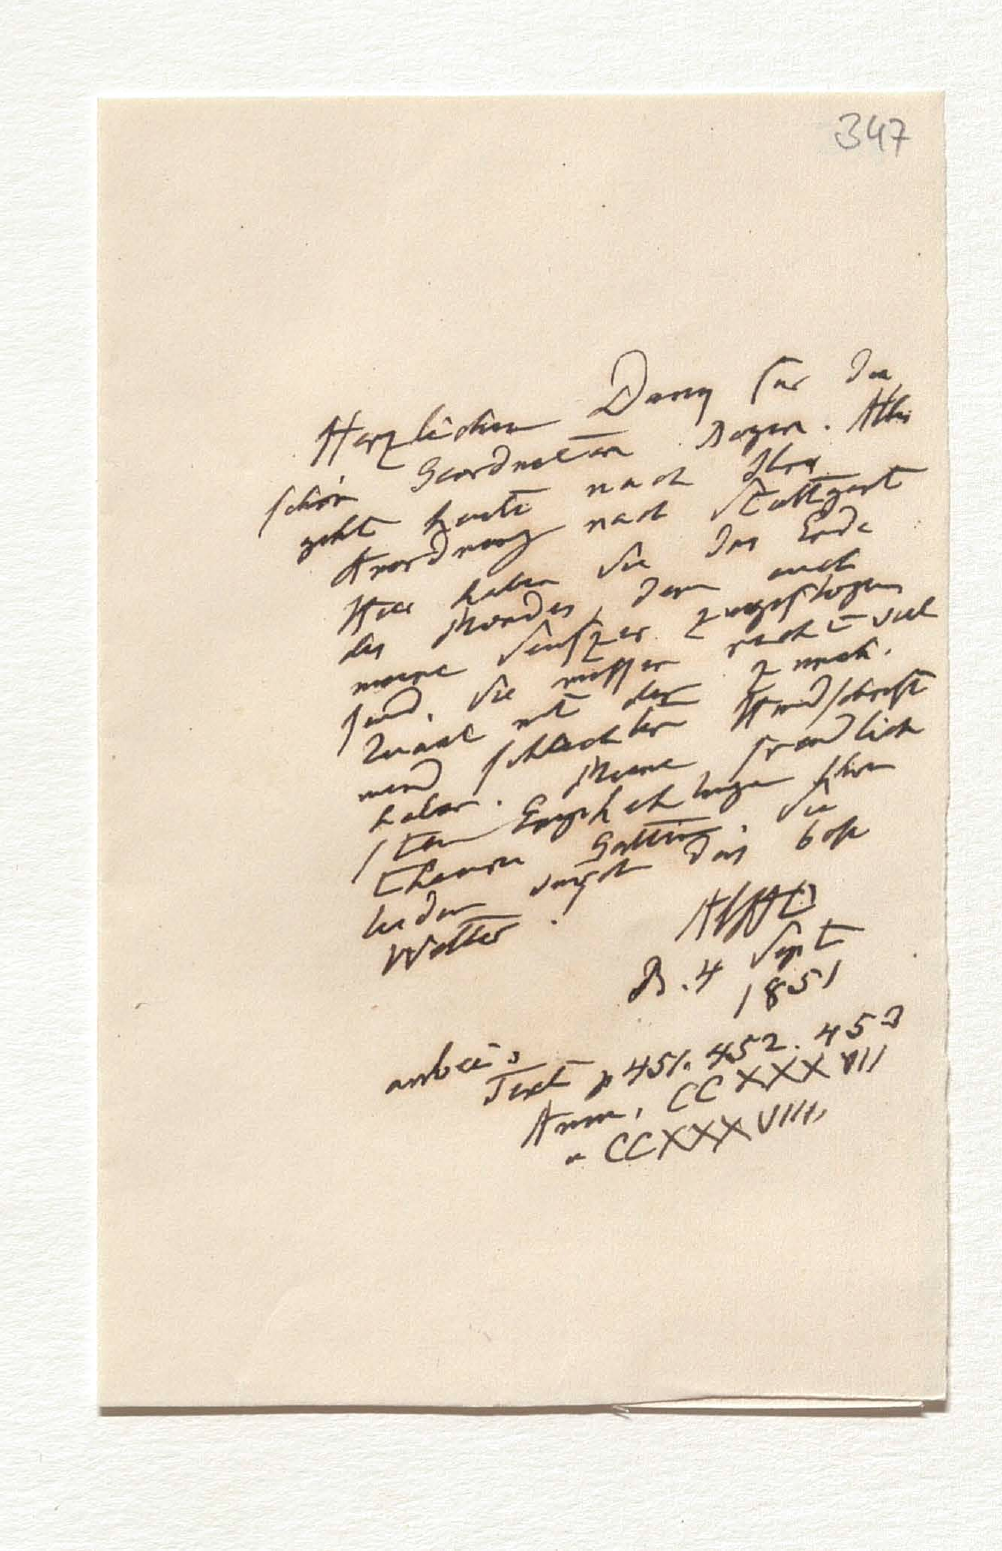 347
Herzlichen Dank für die
schön geordneten Bogen. Alles
geht heute nach Ihrer
Anordnung nach Stuttgart
Hier haben Sie das Ende
des Mondes, dem auch
meine Seufzer zugeflogen
sind. Sie müssen recht viel
Quaal mit der
und schlechten Handschrift
haben. Meine freundlich
sten Empfehlungen Ihrer
theuren Gattin. Sie
leiden durch das böse
Wetter!
AlHt
B. 4 Sept
1851
anbei:
Text p 451. 452. 453
Anm. CCXXXVII
u CCXXXVIII,